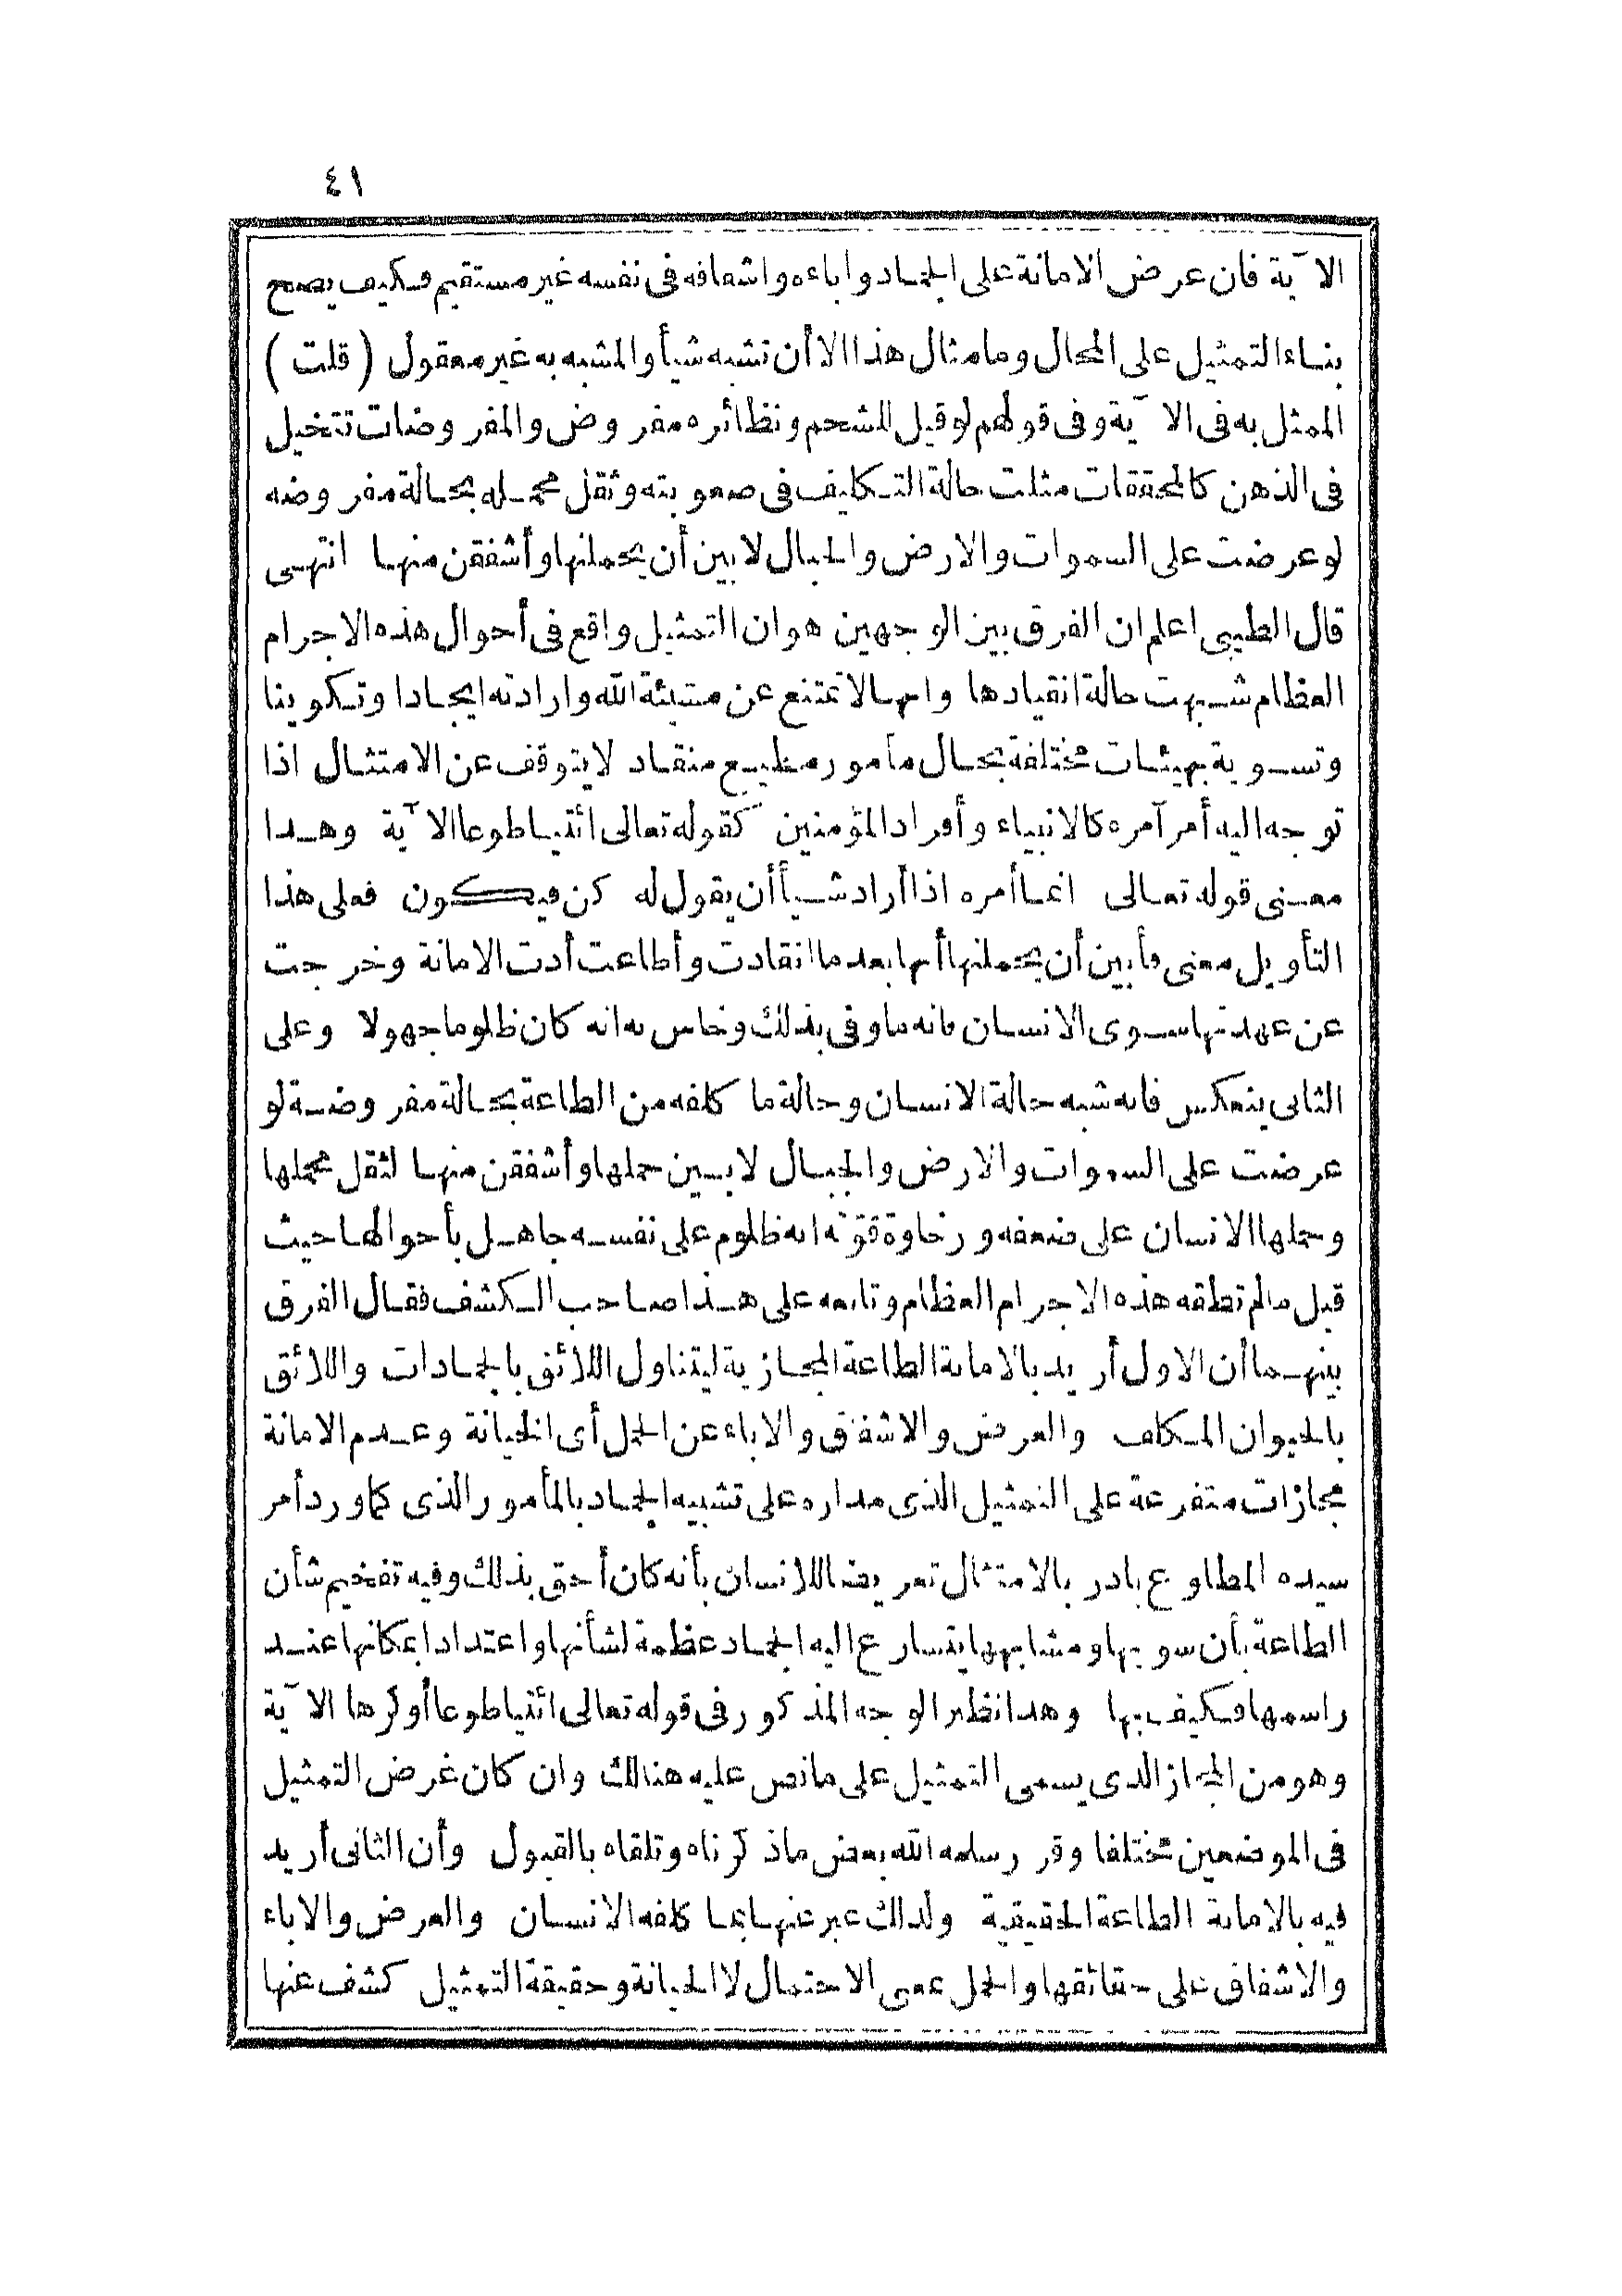 ٤١
الآية فان عرض الامانة على الجماد واباءه واشفاقه فى نفسه غير مستقيم فكيف يصح
بناء التمثيل على المحال وما مثال هذا الا أن تشبه شيأ والمشبه به غير معقول (قلت)
الممثل به فى الآية وفى قولهم لو قيل للشحم ونظائره مفروض والمفروضات تتخيل
فى الذهن كالمحققات مثلت حالة التكليف فى صعوبته وثقل محمله بحالة مفروضه
لو عرضت على السموات والارض والجبال لابين أن يحملنها وأشفقن منها انتهى
قال الطيبى اعلم ان الفرق بين الوجهين هو ان التمثيل واقع فى أحوال هذه الاجرام
العظام شبهت حالة انقيادها وانها لا تمتنع عن مشيئة الله وارادته ايجادا وتكوينا
وتسوية بهيئات مختلفة بحال مأمور مطيع منقاد لا يتوقف عن الامتثال اذا
توجه اليه أمر آمره كالانبياء وأفراد المؤمنين كقوله تعالى ائتيا طوعا الآية وهذا
معنى قوله تعالى انما أمره اذا أراد شيأ أن يقول له كن فيكون فعلى هذا
التأويل معنى فأبين أن يحملنها أنها بعد ما انقادت وأطاعت أدت الامانة وخرجت
عن عهدتها سوى الانسان فانه ما وفى بذلك وخاس به انه كان ظلوما جهولا وعلى
الثانى ينعكس فانه شبه حالة الانسان وحالة ما كلفه من الطاعة بحالة مفروضة لو
عرضت على السموات والارض والجبال لابين حملها وأشفقن منها لثقل محملها
وحملها الانسان على ضعفه ورخاوة قوّته انه ظلوم على نفسه جاهل بأحوالها حيث
قبل ما لم تطقه هذه الاجرام العظام وتابعه على هذا صاحب الكشف فقال الفرق
بينهما أن الاول أريد بالامانة الطاعة المجازية ليتناول اللائق بالجمادات واللائق
بالحيوان المكلف والعرض والاشفاق والاباء عن الحمل أى الخيانة وعدم الامانة
مجازات متفرعة على التمثيل الذى مداره على تشبيه الجماد بالمأمور الذى كما ورد أمر
سيده المطاوع بادر بالامتثال تعريضا للانسان بأنه كان أحق بذلك وفيه تفخيم شأن
الطاعة بأن سويها ومشابهها يتسارع اليه الجماد عظمة لشأنها واعتدادا بمكانها عند
راسمها فكيف بها وهذا نظير الوجه المذكور فى قوله تعالى ائتيا طوعا أو كرها الآية
وهو من المجاز الذى يسمى التمثيل على ما نص عليه هنالك وان كان غرض التمثيل
فى الموضعين مختلفا وقر رسلمه الله بعض ماذكرناه وتلقاه بالقبول وأن الثانى أريد
فيه بالامانة الطاعة الحقيقية ولذلك عبر عنها بما كلفه الانسان والعرض والاباء
والاشفاق على حقائقها والحمل بمعنى الاحتمال لا الخيانة وحقيقة التمثيل كشف عنها